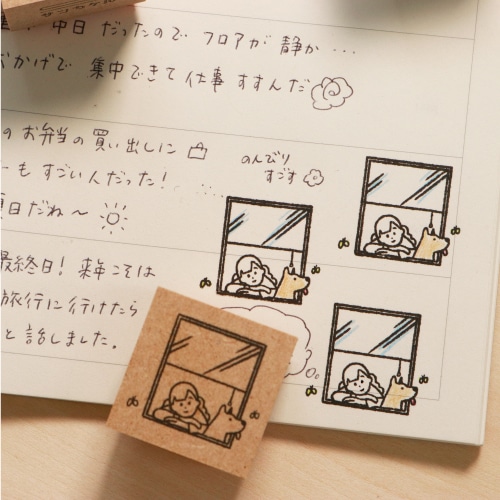 中日だったので フロアが 静か ...
おかげで 集中できて 仕事 すすんだ
のお弁当の買い出しに
のんびり
すごす
ーも すごい人だった!
日だね〜
最終日! 来年こそは
旅行に行けたら
と話しました。